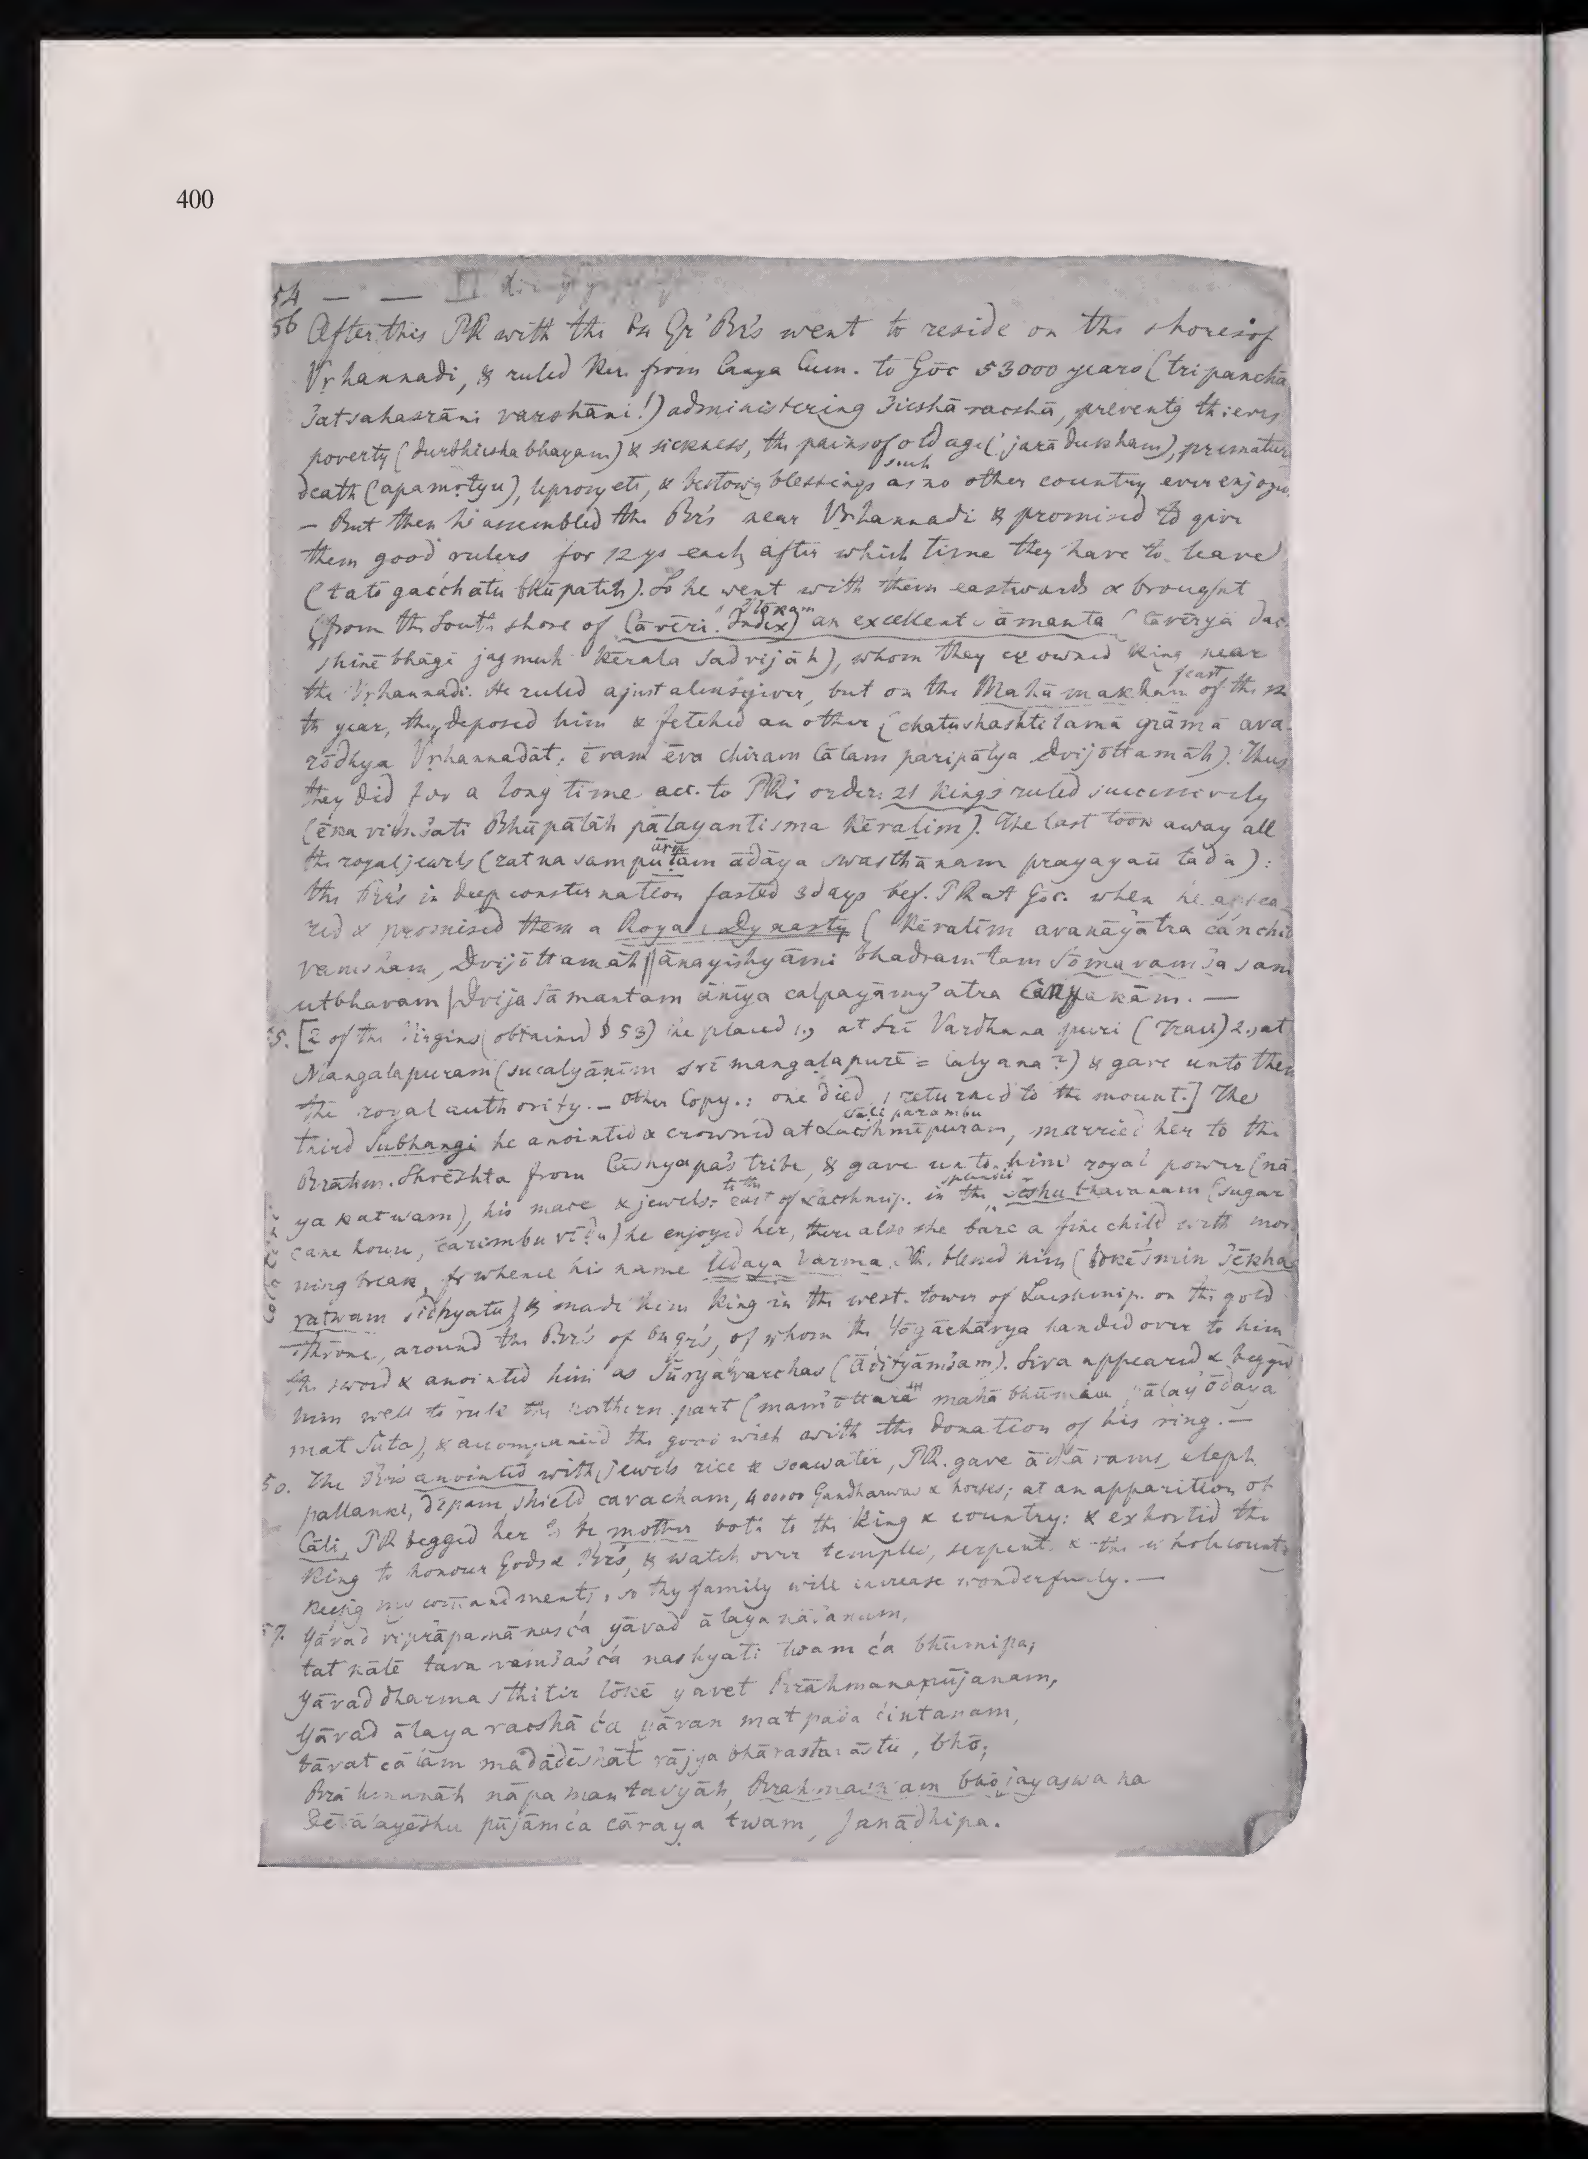 400
54 — — II
56 After this PR with the 64 Gr' Br's went to reside on the shores of
Vr̥hannadi, & ruled Ker. from Canya Cum. to Gōc 53000 years (tripanchā
śatsahasrāni varshāni!) administering śicshā racshā, preventg thieves
poverty (durbhicsha bhayam) & sickness, the pains of old age (jarā dukham), prematur
death (apamr̥tyu), leprosy etc, & bestowg blessings such as no other country ever enjoyed.
— But then he assembled the Br's near Vr̥hannadi & promised to give
them good rulers for 12 ys each, after which time they have to leave
(tatō gaććhatu bhūpatih). So he went with them eastwards & brought
(from the South shore of Cāvēri. ślōkam Index) an excellent Sāmanta (Cāvēryā dac
shinē bhāgē jagmuh Kērala Sadvijāh), whom they crowned King near
the Vr̥hannadi. He ruled a just almsgiver, but on the Mahā makham feast of the 12
th year, they deposed him & fetched an other (chatushashtitamā grāmā ava
rōdhya Vr̥hannadāt; ēvam ēva chiram Cālam paripālya Dvijōttamāh). Thus
they did for a long time acc. to PR's order: 21 Kings ruled successively
(ēka vimśati Bhūpālāh pālayantisma Kēralīm). The last took away all
the royal jewels (ratna sampuṭam ādāya swasthānam prayayau tadā):
the Br's in deep consternation fasted 3 days bef. PR at Goc. when he appea
red & promised them a Royal Dynasty (Kēralīm avanāyātra cānchid
vamsham, Dvijōttamāh || ānayishyāmi bhadram tam Sōmavamśa sam
utbhavam | Dvija Sāmantam ānīya calpayāmy' atra Canyakām. —
55. [2 of the Virgins (obtained § 53) he placed 1., at Srī Vardhana puri (Trav) 2., at
Mangalapuram (sucalyāṇīm Srī mangalapurē = Calyana?) & gave unto them
the royal authority. — Other Copy.: one died, 1 returned to the mount.] The
third Subhangi he anointed & crowned at Lacshmīpuram, married her to the
Brāhm. Shrēshta from Cāshyapa's tribe, & gave unto him royal power (nā
yakatwam), his mace & jewels: to the east of Lacshmip. in the splendid Icshu bhavanam (sugar
cane house, carimbu vīḍu) he enjoyed her, there also she bare a fine child with mor
ning break, fr whence his name Udaya Varma. PR. blessed him (lōkē'smin Sēkha
ratwam sidhyatu) & made him King in the west. tower of Lacshmip. on the gold
Throne, around the Br's of 64 gr's, of whom the Yōgāchārya handed over to him
the sword & anointed him as Sūryavarchas (Ādityāmśam). Siva appeared & begged
him well to rule the northern part (mam' ōttarē mahā bhūmau pālay' ōdaya
mat Suta), & accompanied the good wish with the donation of his ring. —
56. The Br's anointed with jewels rice & seawater, PR. gave ābharams, eleph.
pallanki, dīpam, shield cavacham, 400000 Gandharwas & horses; at an apparition of
Cāli, PR begged her to be mother both to the King & country: & exhorted the
King to honour Gods & Br's, & watch over temples, serpent. & the whole country
keepg my commandments, so thy family will increase wonderfully. —
57. Yāvad viprāpamānaśća yāvad ālaya nāśanam,
tat kālē tava vamśaśća nashyati twam ća bhūmipa;
Yāvad dharma sthitir lōkē yavet Brāhmanapūjanam,
Yāvad ālaya racshā ća yāvan mat pāda ćintanam,
tāvat cālam madādēshāt rājya bhārastavāstu, bhō;
Brāhmanāh nāpamantavyāh, bhōjayaswa ha
Dēvālayēshu pūjām ća cāraya twam, Janādhipa.